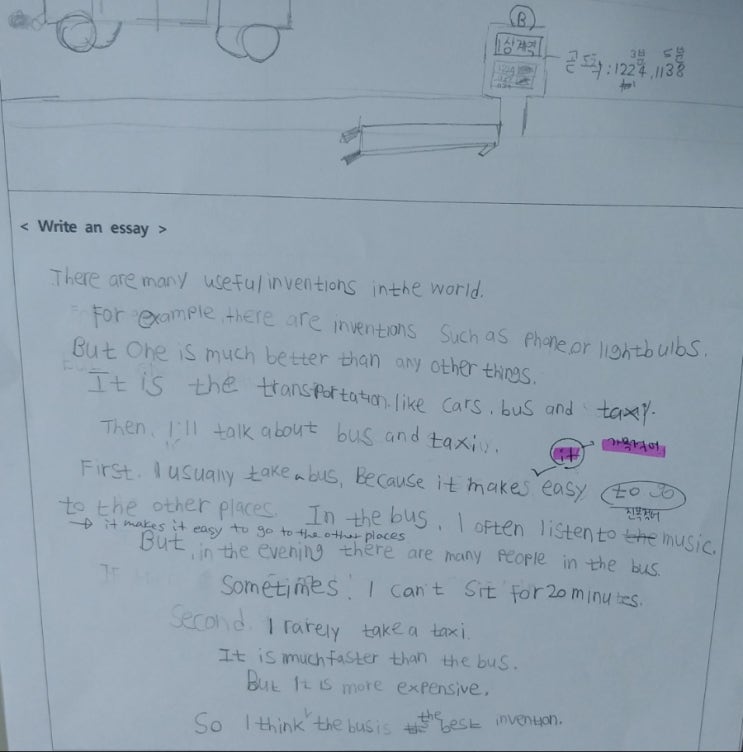 B
상계역
3분 5분
1224, 1138
< Write an essay >
There are many useful inventions in the world.
For example, there are inventions such as phone, or lightbulbs.
But One is much better than any other things.
It is the transportation like cars, bus and taxi.
Then, I'll talk about bus and taxi.
it → 가목적어
First. I usually take a bus, Because it makes easy to go
진목적어
to the other places. In the bus, I often listen to the music.
→ it makes it easy to go to the other places
But, in the evening there are many people in the bus.
Sometimes, I can't sit for 20 minutes.
Second. I rarely take a taxi.
It is much faster than the bus.
But It is more expensive.
So I think the bus is the best invention.